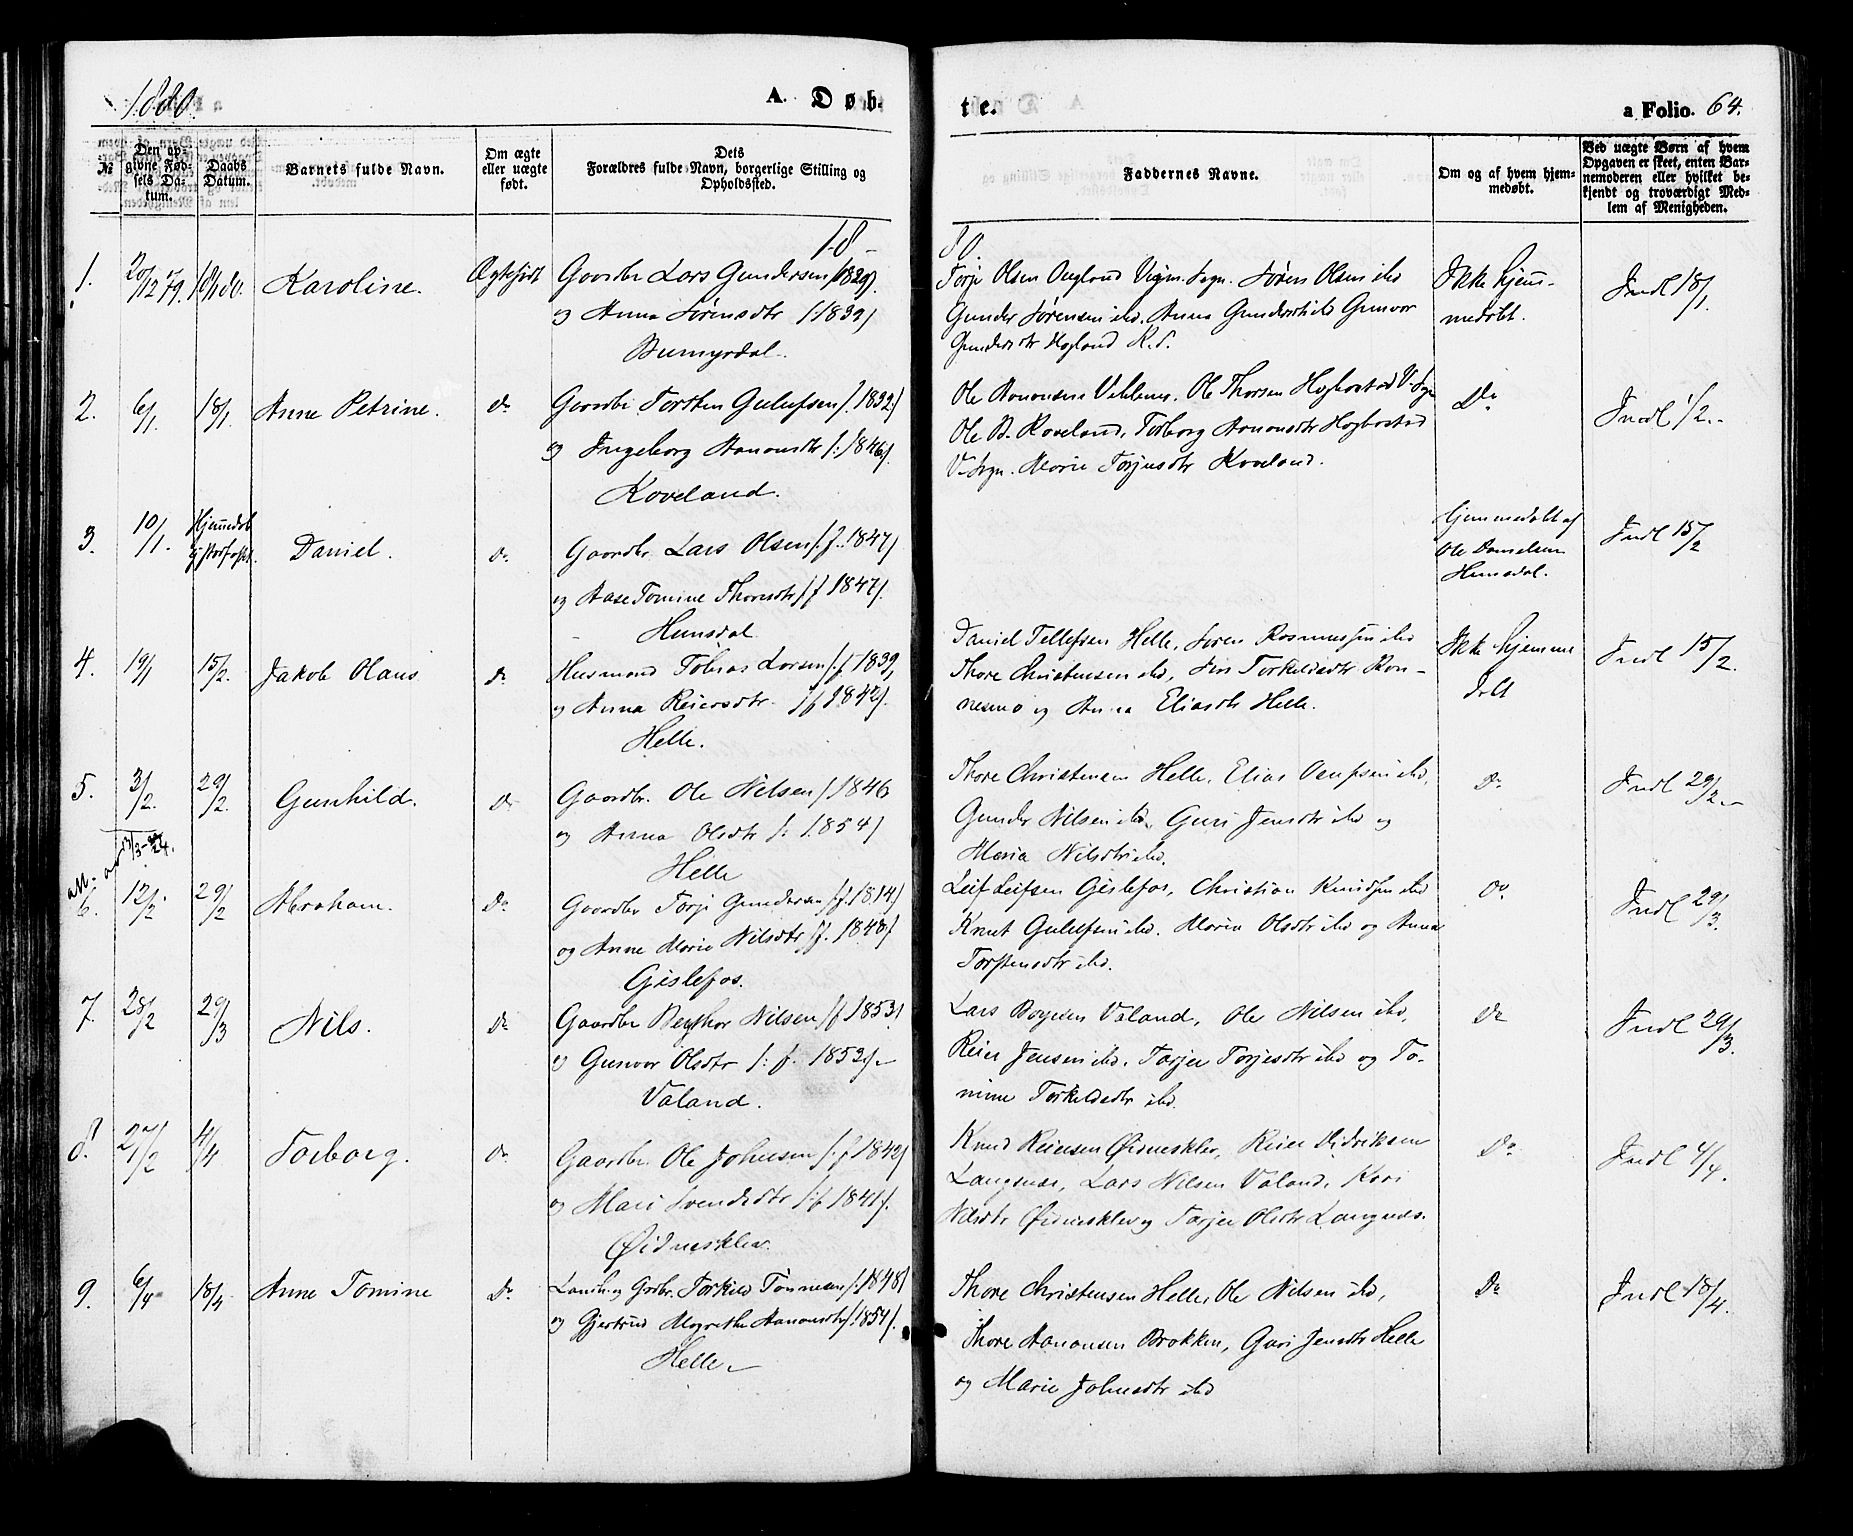 1880.
A. Døb-
te.
a Folio. 64.
№
Den op-
givne Fød-
sels Da-
tum.
Daabs
Datum.
Barnets fulde Navn.
Om ægte
eller uægte
født.
Dets
Forældres fulde Navn, borgerlige Stilling og
Opholdssted.
Faddernes Navne.
Om og af hvem hjem-
medøbt.
Ved uægte Børn af hvem
Opgaven er skeet, enten Bar-
nemoderen eller hvilket be-
kjendt og troværdigt Med-
lem af Menigheden.
18-
80.
1. 20/12 79. 18/1 80. Karoline. Ægtefødt
Gaardbr Lars Gundersen (1829).
og Anna Sørensdtr (1839)
Torje Olsen Søren Olsen ibd
Gunder Sørensen ibd. Anna Gundersdtr ibd Gunvor
Gundersdtr Hogland
Ikke hjem-
medøbt.
Indl 18/1
2. 6/1 18/1 Anne Petrine. Do
Gaardbr Torsten Gulufsen f. 1832)
og Ingeborg Aanonsdtr f: 1846).
Koveland.
Ole Aanonsen Ole Thorsen Høgbostad V-Sogn
Ole B. Koveland, Torborg Aanonsdtr Høgbostad
V-Sogn. Marie Torjusdtr Koveland.
Do
Indl 1/2.-
3. 10/1. Hjemmedøb
Daniel. Do
Gaardbr. Lars Olsen f. 1847)
og Aase Tomine Thorsdtr f 1847).
Hunsdal
hjemmedøbt af
Ole Danielsen
Hunsdal.
Indl 15/2
4. 19/1 15/2. Jakob Olaus Do
Husmand Tobias Larsen f. 1839,
og Anna Reiersdtr. f 1842).
Helle.
Daniel Tellefsen Helle, Søren Rasmussen ibd
Thore Christensen ibd, Siri Torkildsdtr Røn-
nesmo og Anna Eliasdtr Helle.
Ikke hjemme
døbt
Indl 15/2.
5. 3/2. 29/2. Gunhild. Do
Gaardbr. Ole Nilsen f 1846
og Anna Olsdtr f: 1854)
Helle
Thore Christensen Helle, Elias ibd,
Gunder Nilsen ibd, Guri Jensdtr ibd og
Maria Nilsdtr ibd.
Do
Indl 29/2.-
6. 12/2. 29/2 Abraham. Do
Gaardbr Torje Gundersen f. 1814)
og Anne Marie Nilsdtr f. 1840)
Gislefos.
Leif Leifsen Gislefos, Christian Knudsen ibd
Knut Gulufsen ibd. Maria Olsdtr ibd og Anna
Torstensdtr ibd.
Do
Indl 29/3.
7. 28/2 29/3 Nils. Do
Gaardbr Bergthor Nilsen f 1853)
og Gunvor Olsdtr f: f. 1852).-
Valand.
Lars Valand, Ole Nilsen ibd,
Reier Jensen ibd. Tarjer Torjesdtr ibd og To-
mine Torkildsdtr ibd.
Do
Indl 29/3.
8. 27/2 4/4 Torborg. Do
Gaardbr. Ole Johnsen f. 1842)
og Mari Svendsdtr f 1841).
Øidnesklev.
Knud Reiersen Øidnesklev, Reier Didriksen
Langenes, Lars Nilsen Valand, Kari
Nilsdtr Øidnesklev og Tarjer Olsdtr Langenes.
Do
Indl 4/4.
9. 6/4 18/4 Anne Tomine Do
Torkild Tønnesen f. 1848)
og Gjertrud Magrethe Aanonsdtr f. 1854).
Helle.-
Thore Christensen Helle, Ole Nilsen ibd,
Thore Aanonsen Brokken, Guri Jensdtr Helle
og Marie Johnsdtr ibd
Do
Indl 18/4.